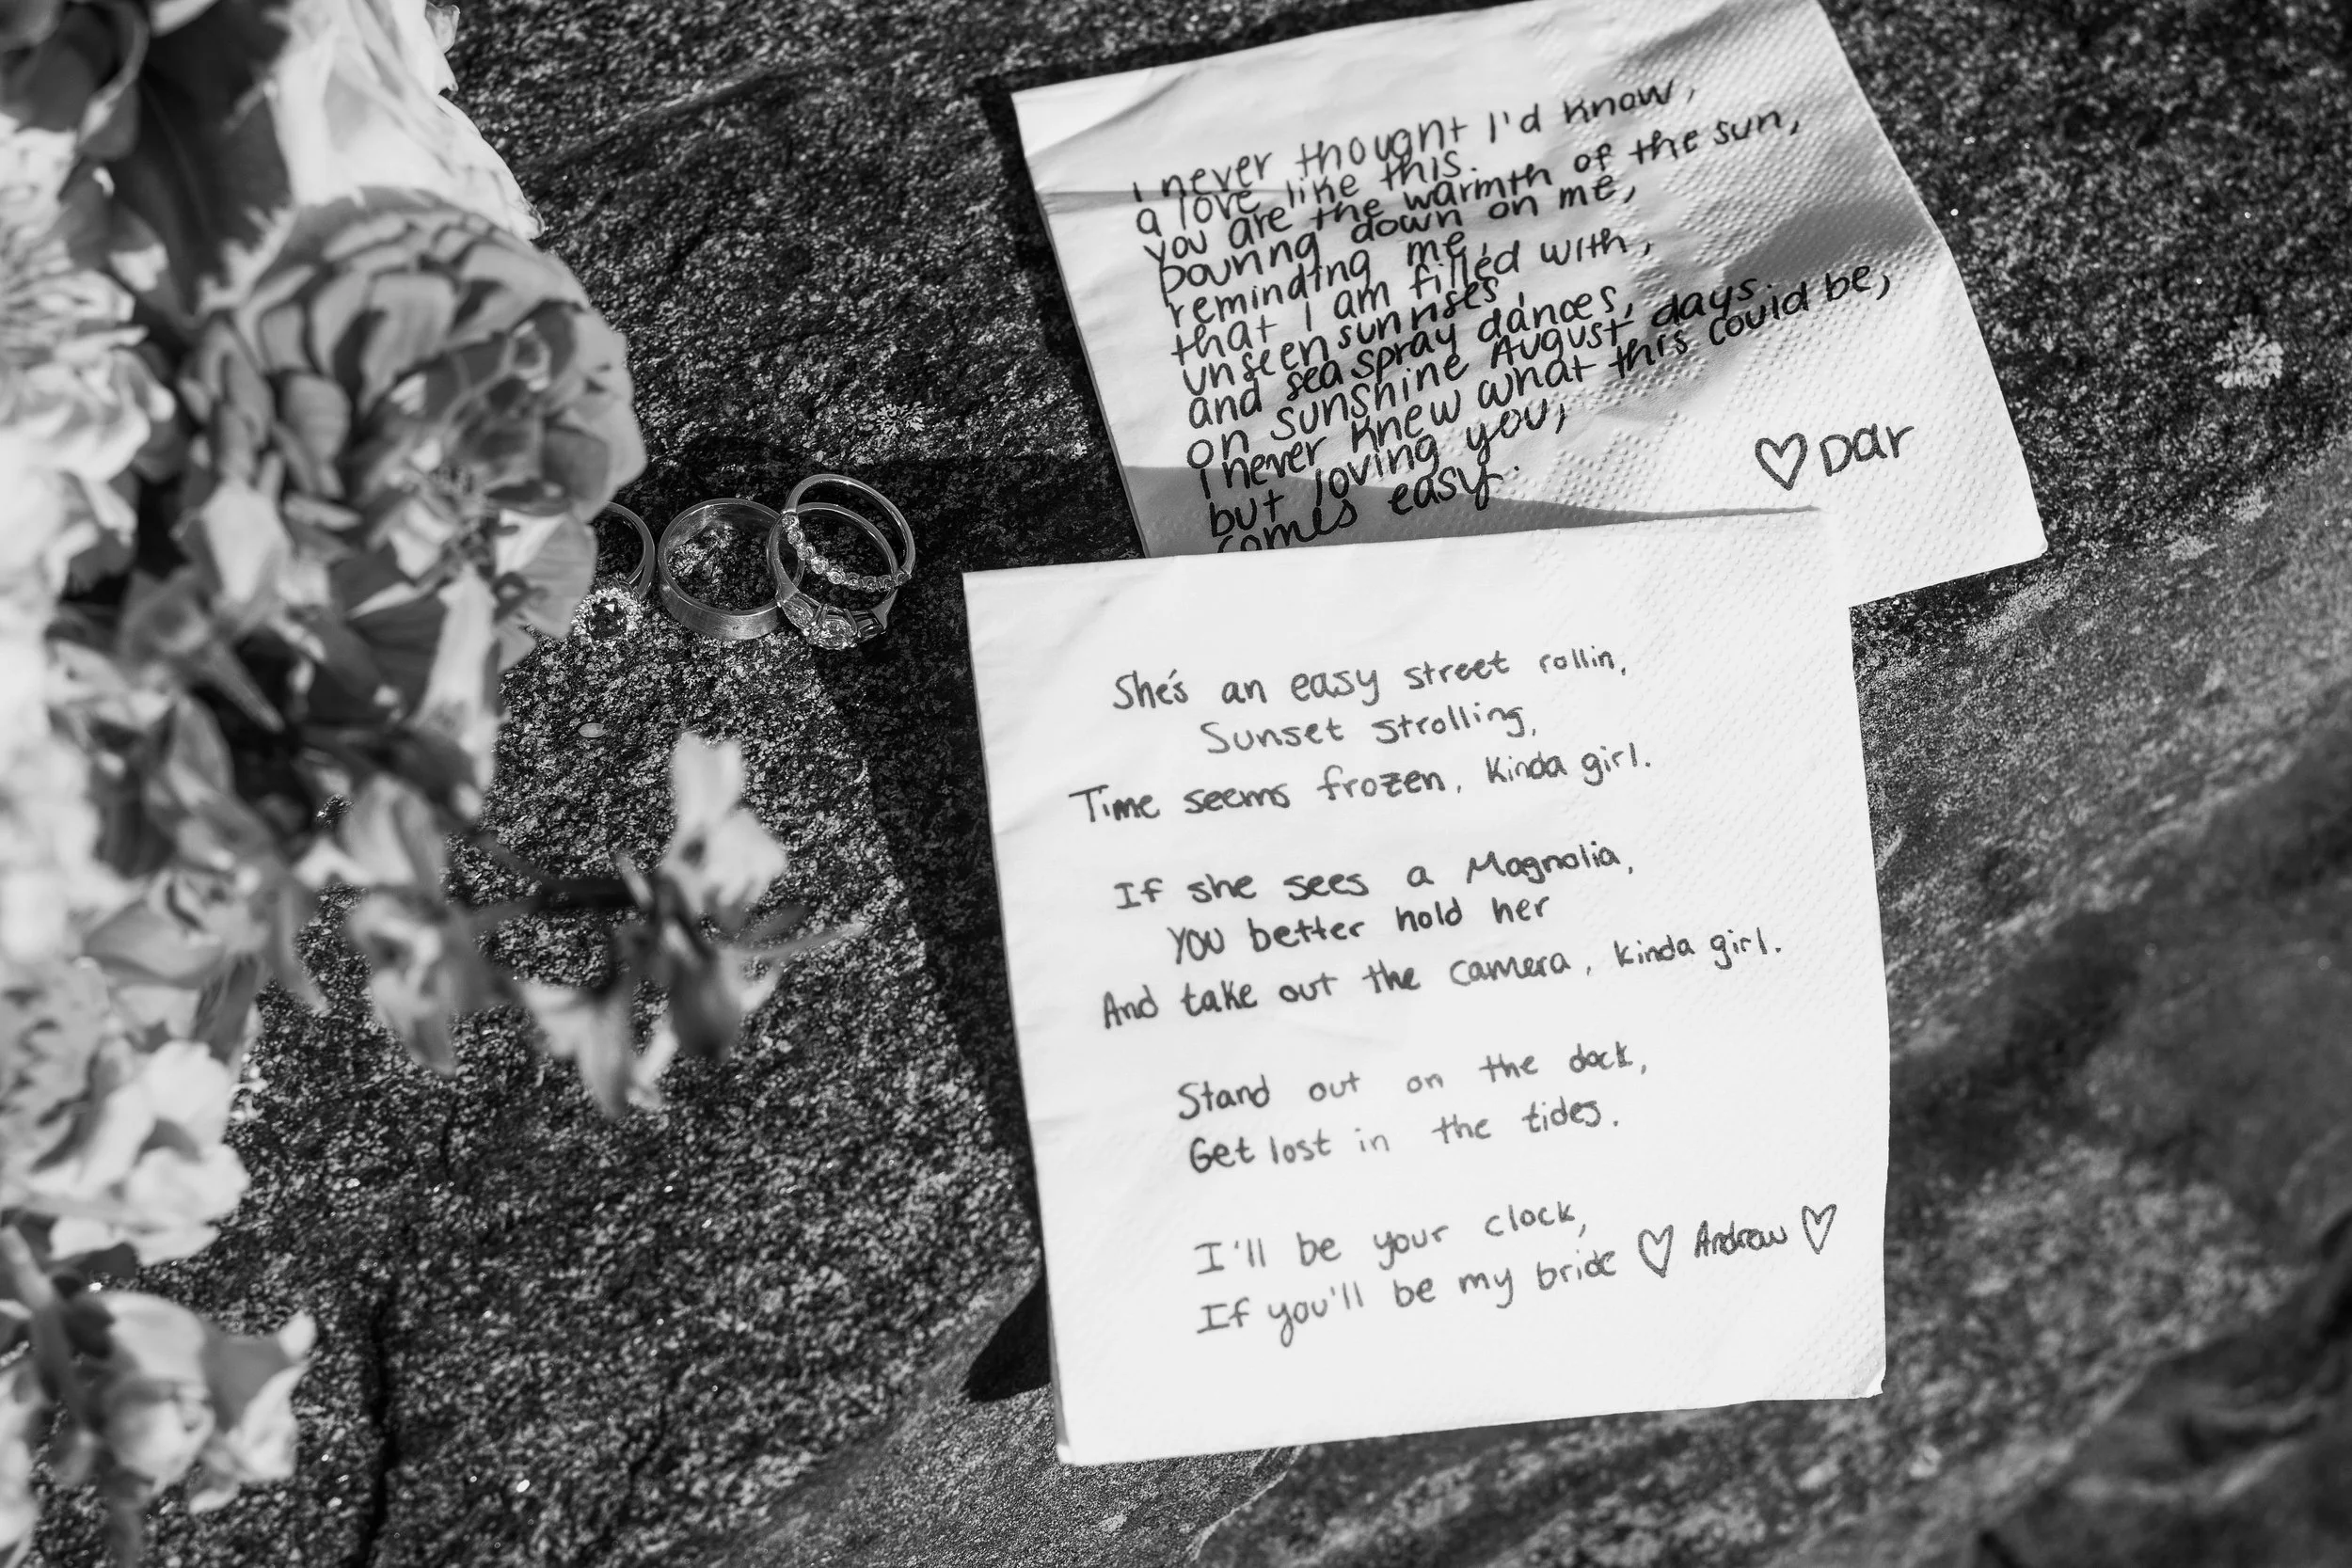 I never thought I'd know,
a love like this.
you are the warmth of the sun,
pouring down on me,
reminding me,
that I am filled with,
unseen sunrises,
and sea spray dances,
on sunshine August days.
I never knew what this could be,
but loving you,
comes easy.
♡ Dar
She's an easy street rollin,
Sunset strolling,
Time seems frozen, kinda girl.
If she sees a Magnolia,
You better hold her
And take out the camera, kinda girl.
Stand out on the dock,
Get lost in the tides.
I'll be your clock,
If you'll be my bride ♡ Andrew ♡